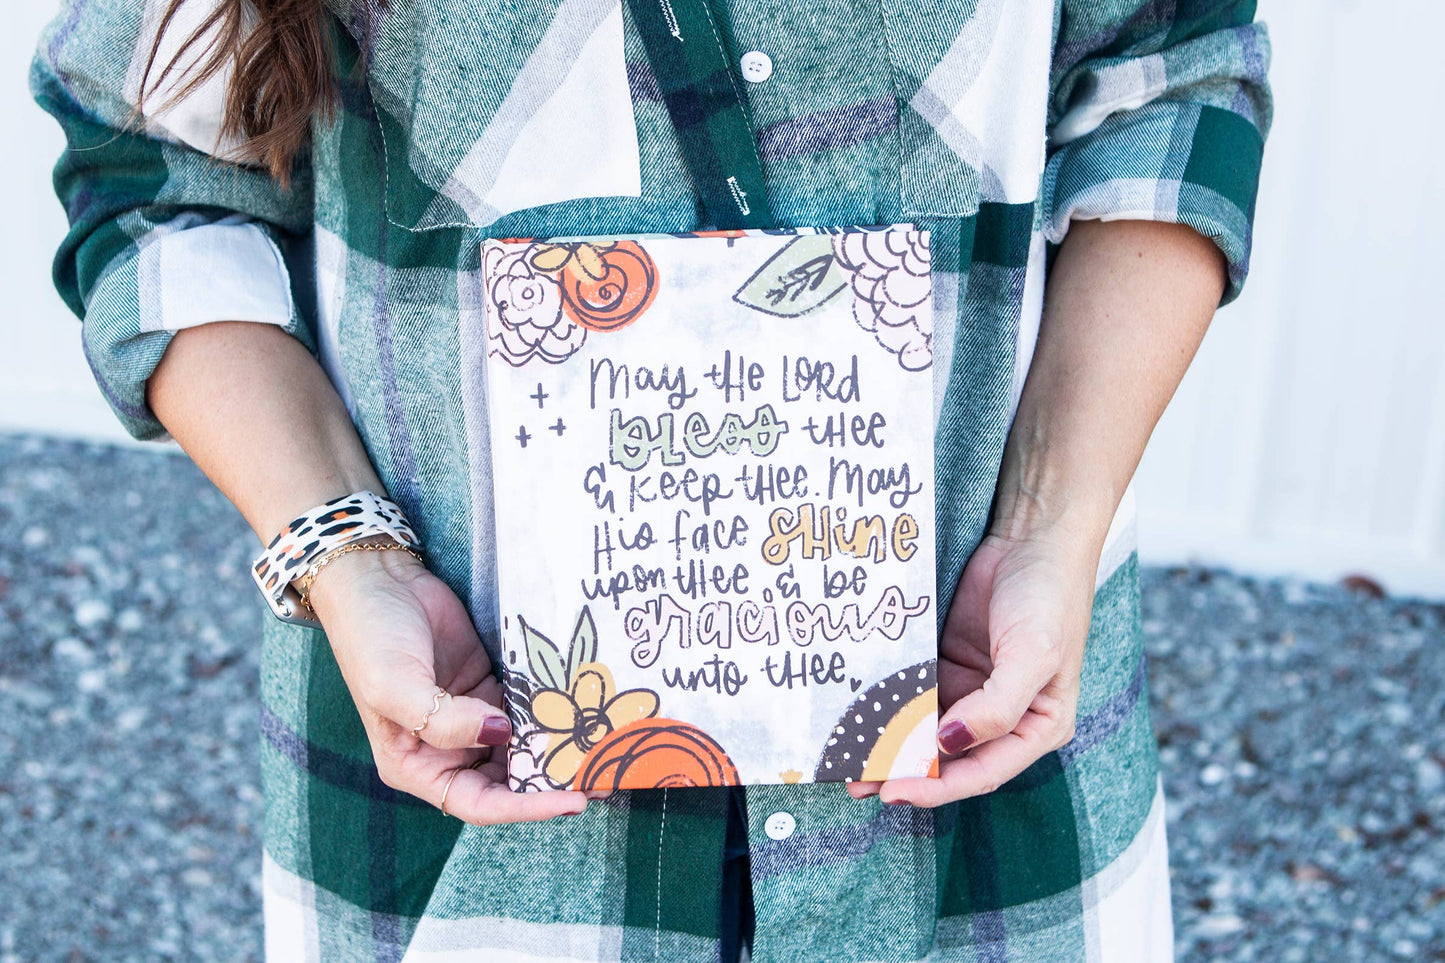 May the Lord
bless thee
& keep thee. May
His face shine
upon thee & be
gracious
unto thee.